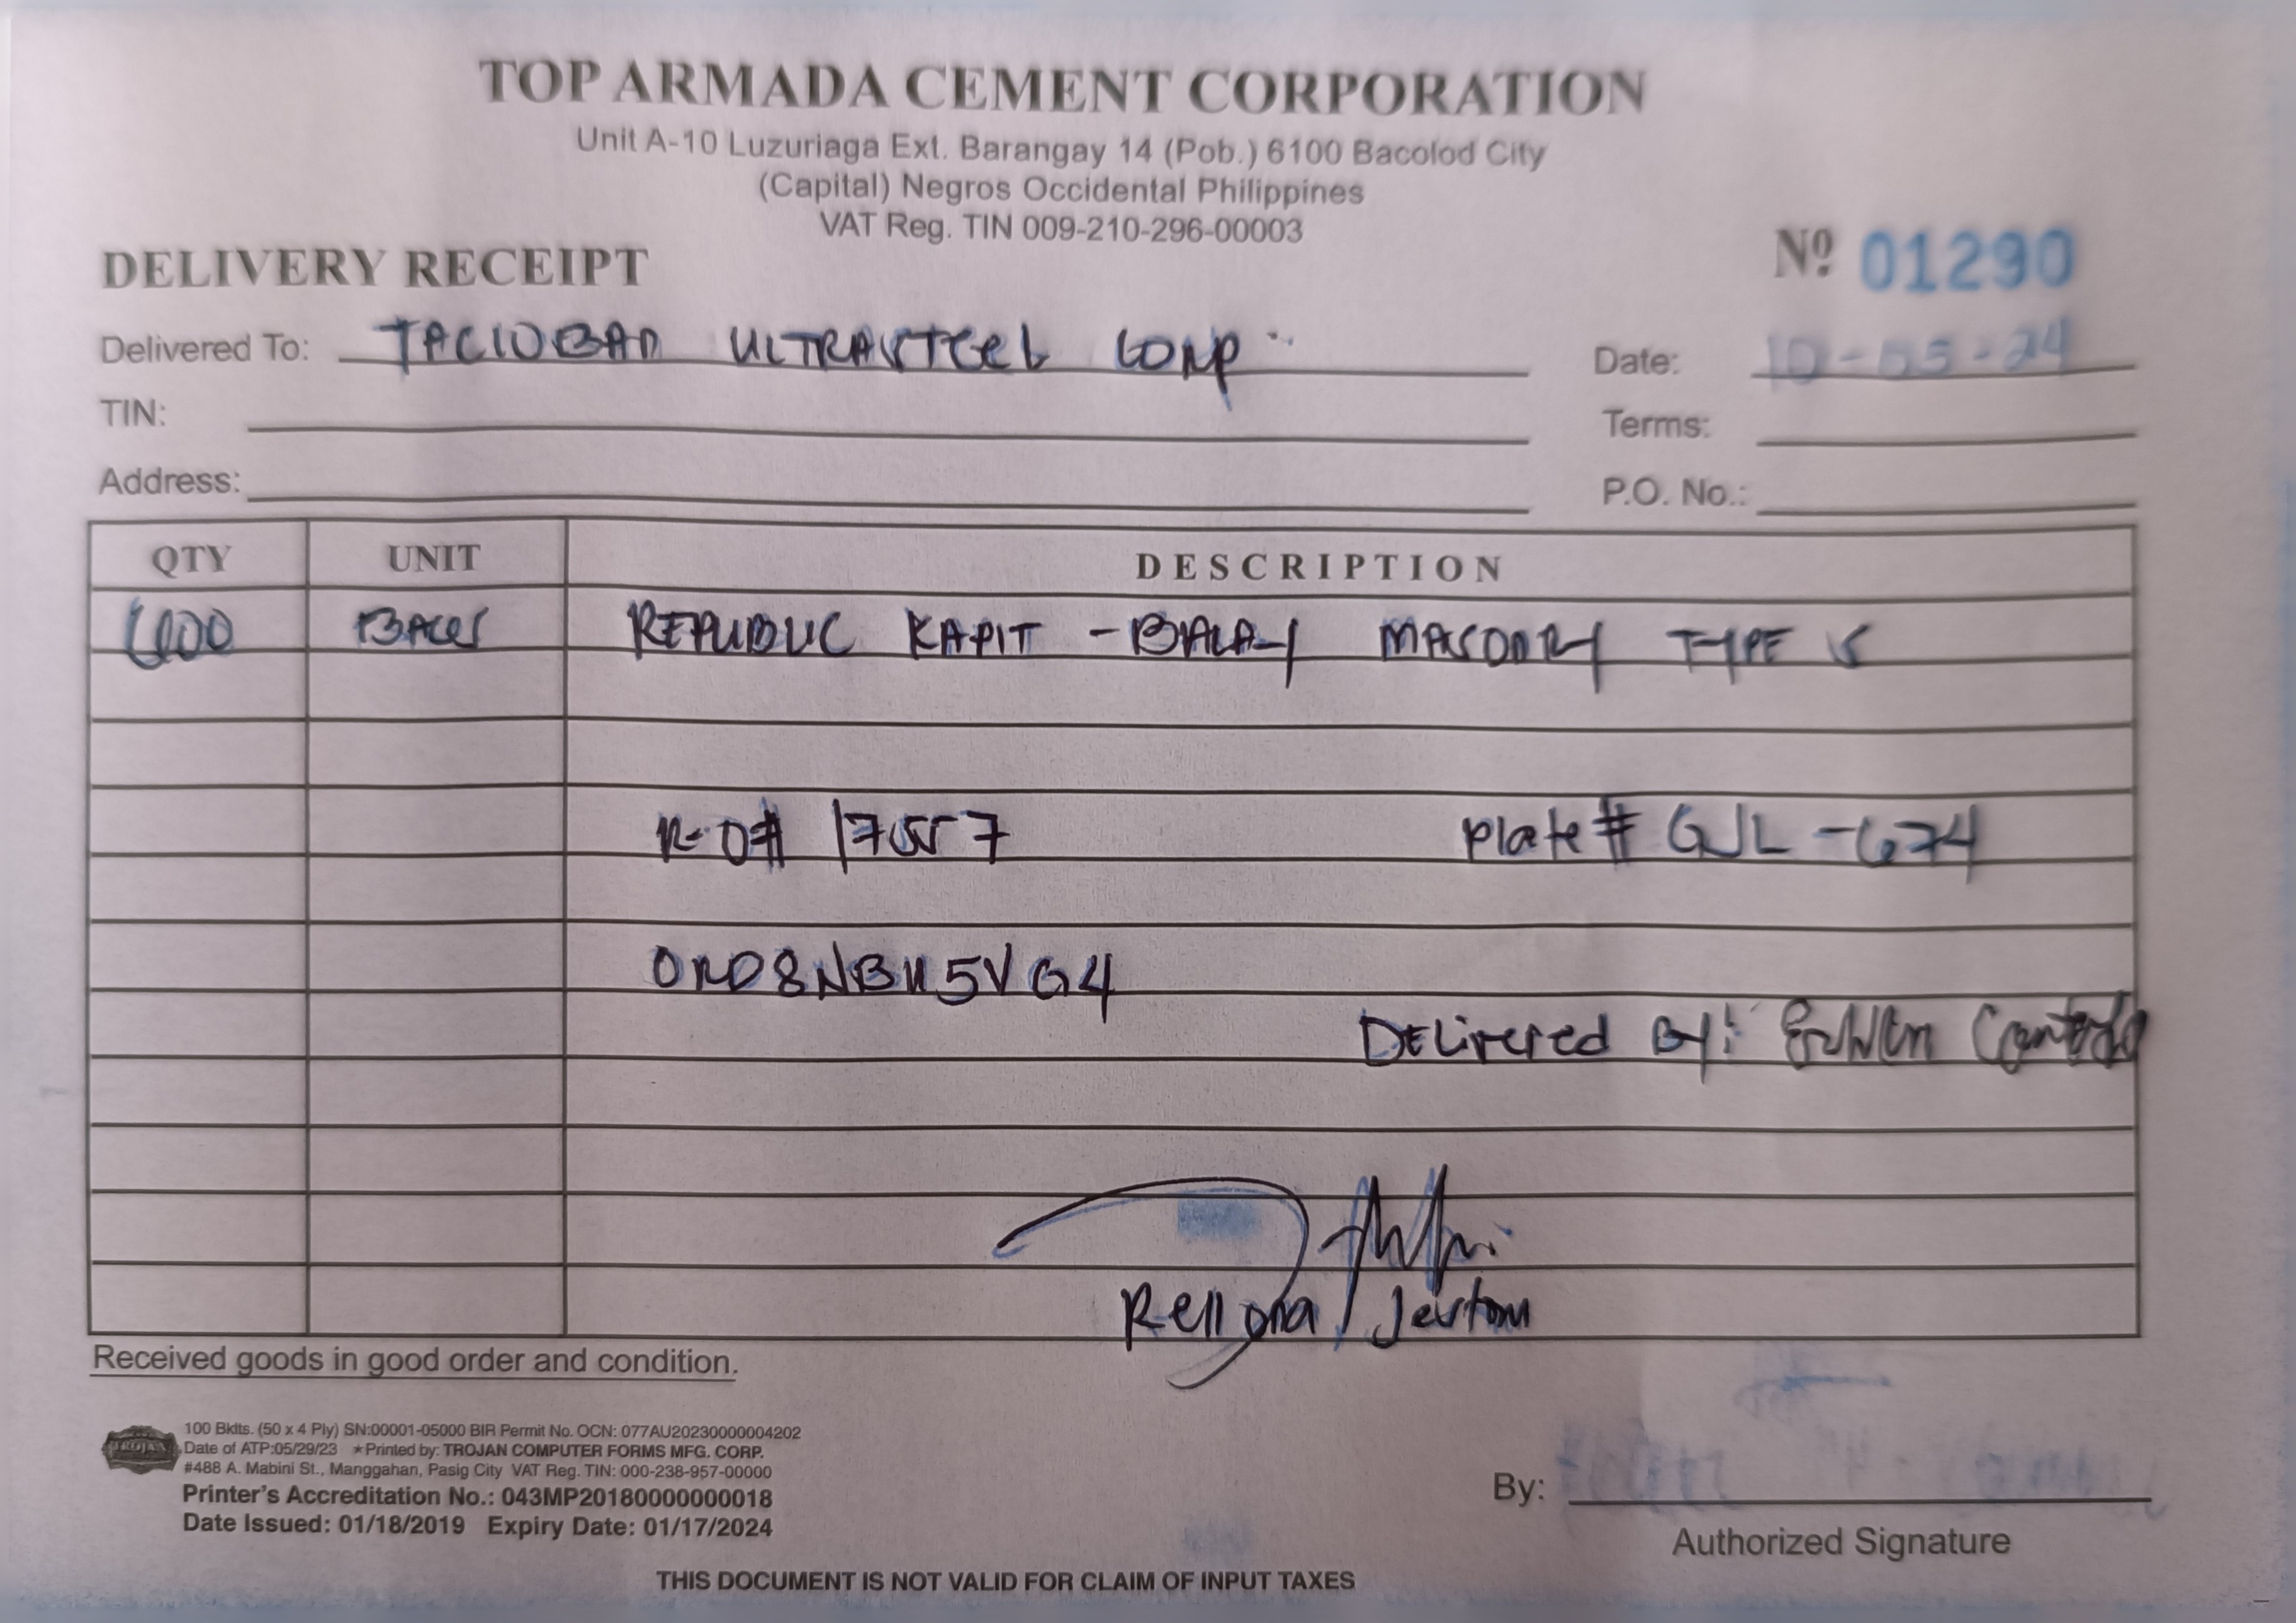 TOP ARMADA CEMENT CORPORATION
Unit A-10 Luzuriaga Ext. Barangay 14 (Pob.) 6100 Bacolod City
(Capital) Negros Occidental Philippines
VAT Reg. TIN 009-210-296-00003
DELIVERY RECEIPT
Nº 01290
Delivered To: TACLOBAN ULTRASTEEL CORP
Date: 10-05-24
TIN:
Terms:
Address:
P.O. No.:
QTY UNIT DESCRIPTION
600 BAGS REPUBLIC KAPIT-BALAY MASONRY TYPE S
R-O# 17557 Plate# GJL-674
ORD8NBH5VG4
DELivered By:
Rellona / Jestom
Received goods in good order and condition.
100 Bklts. (50 x 4 Ply) SN:00001-05000 BIR Permit No. OCN: 077AU20230000004202
TROJAN
Date of ATP:05/29/23 ★Printed by: TROJAN COMPUTER FORMS MFG. CORP.
#488 A. Mabini St., Manggahan, Pasig City VAT Reg. TIN: 000-238-957-00000
Printer's Accreditation No.: 043MP20180000000018
Date Issued: 01/18/2019 Expiry Date: 01/17/2024
By:
Authorized Signature
THIS DOCUMENT IS NOT VALID FOR CLAIM OF INPUT TAXES